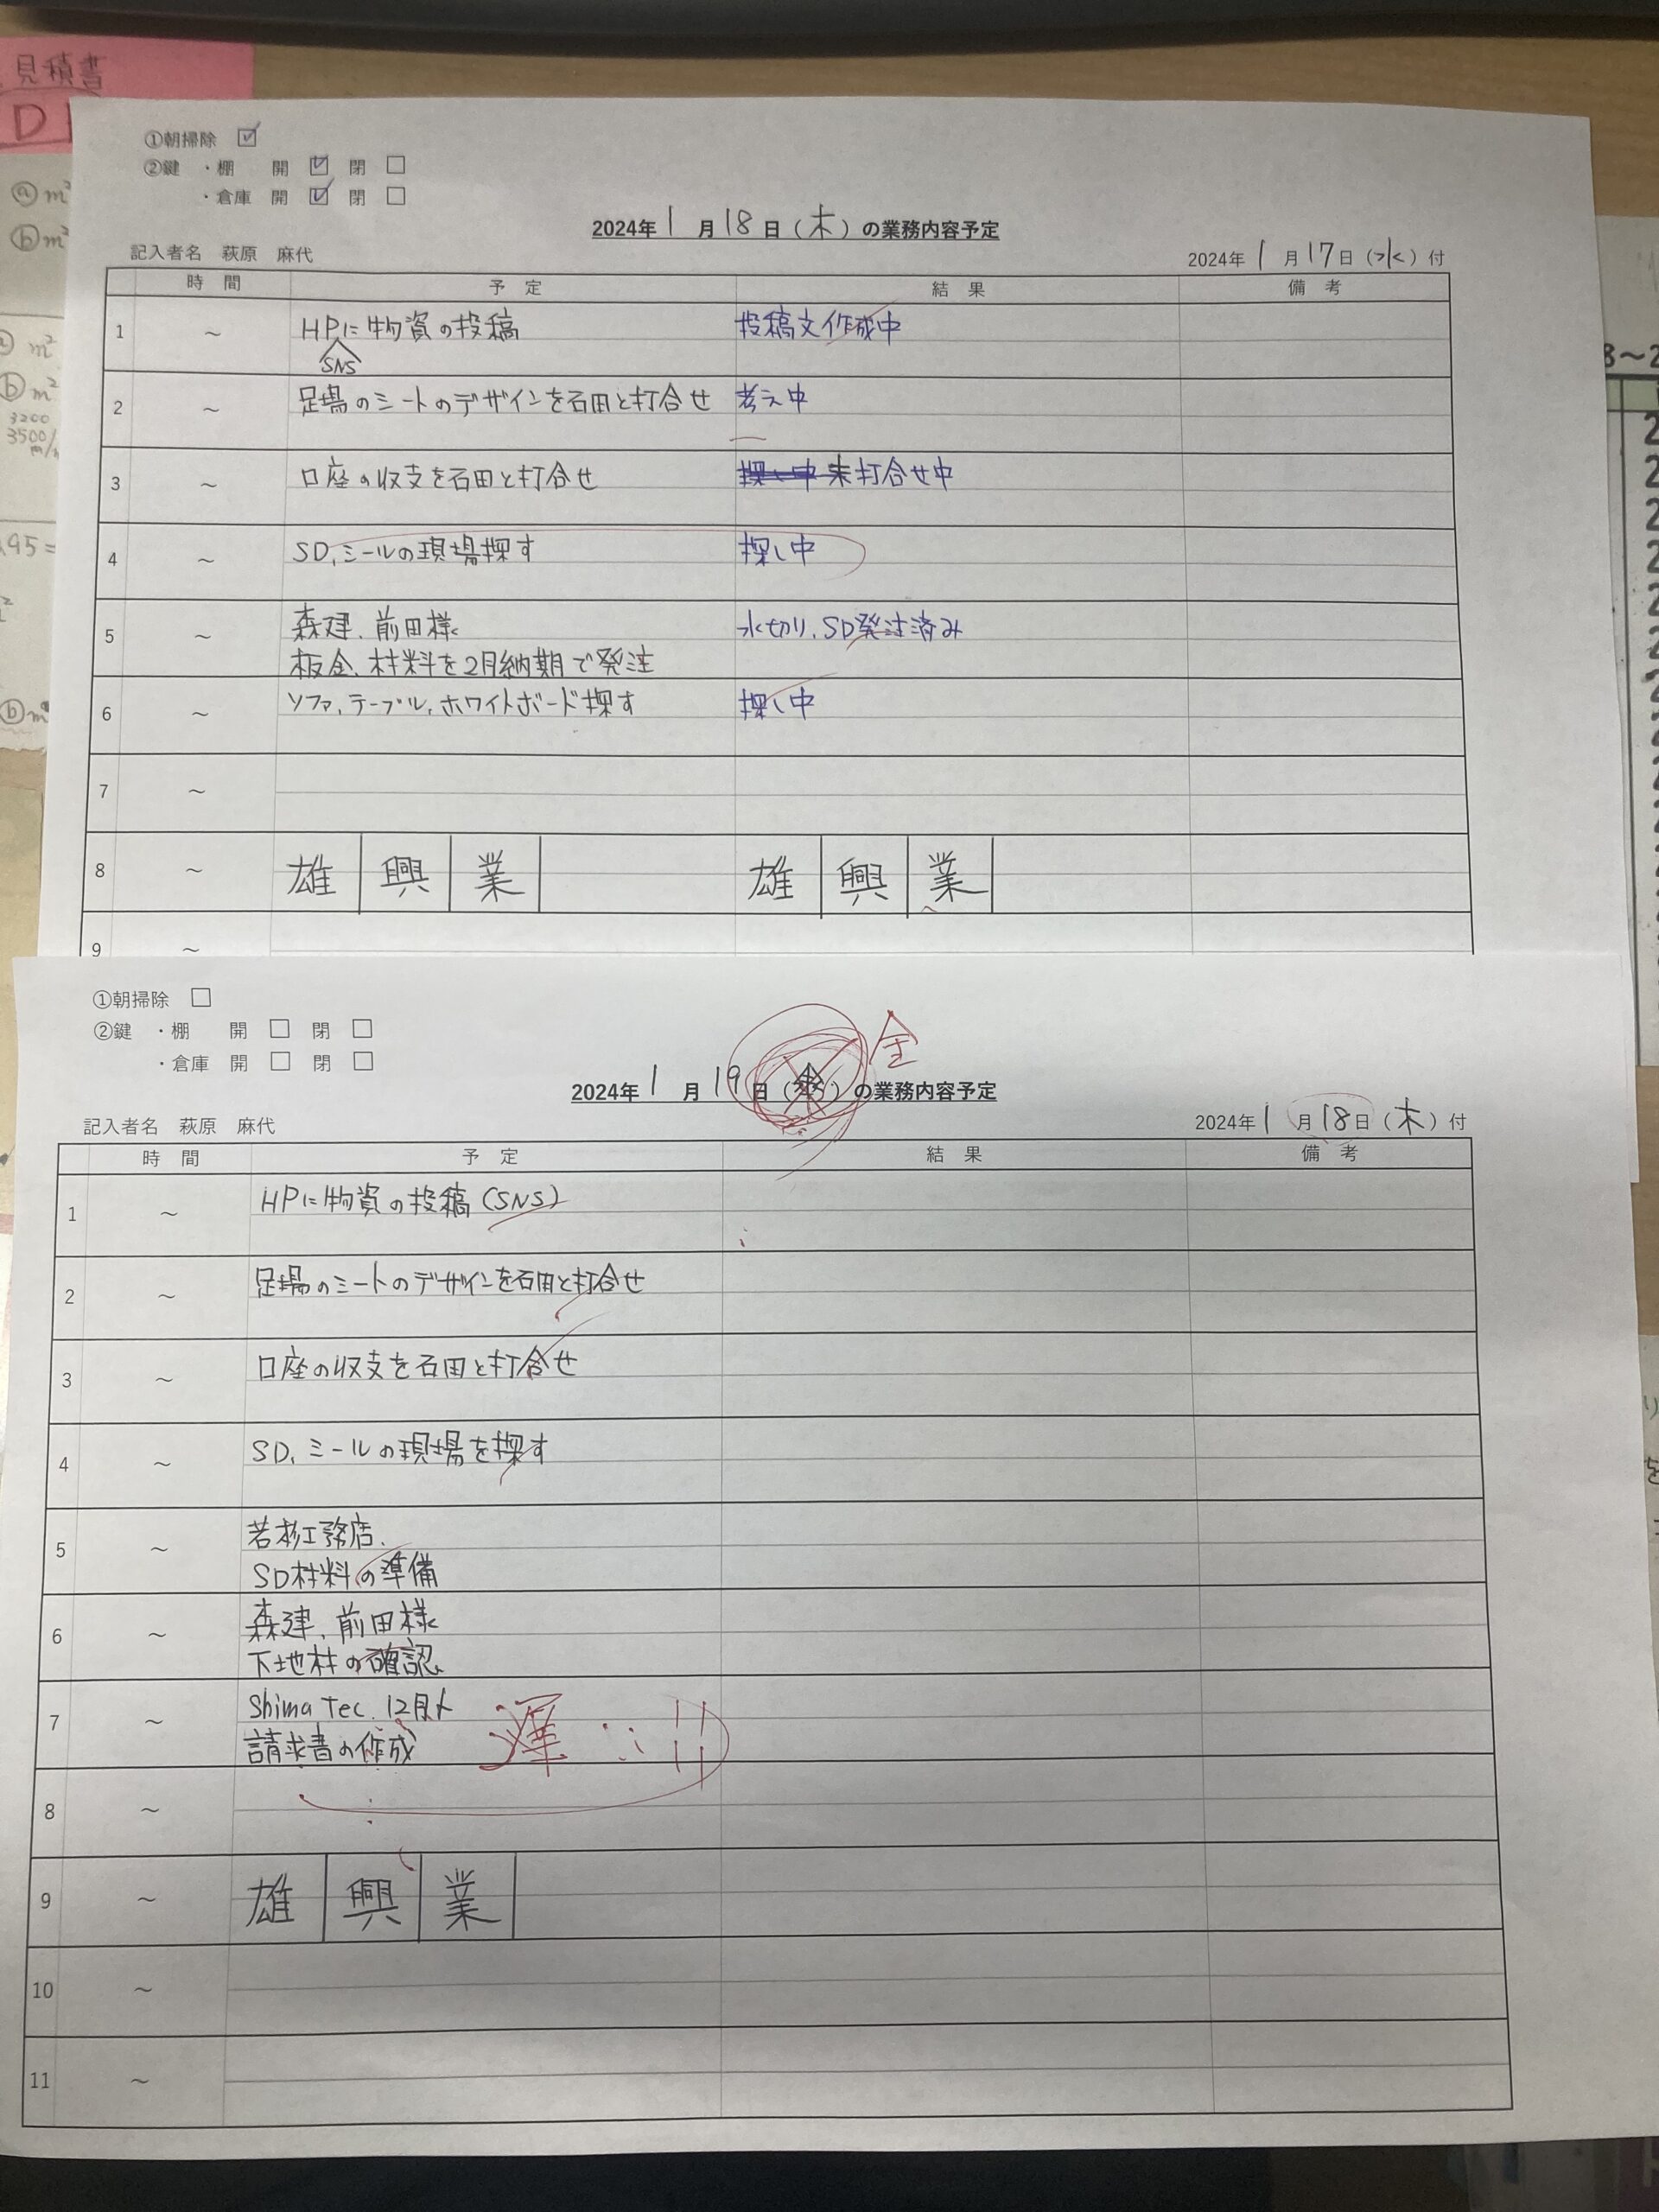 見積書
①朝掃除 ☑
②鍵 ・棚 開 ☑ 閉 □
・倉庫 開 ☑ 閉 □
2024年 1 月 18 日（木）の業務内容予定
記入者名 萩原 麻代
2024年 1 月 17 日（水）付
時間 予定 結果 備考
1 ～ HPに物資の投稿 投稿文作成中
SNS
2 ～ 足場のシートのデザインを石田と打合せ 考え中
3 ～ 口座の収支を石田と打合せ 未打合せ中
4 ～ SD、ミールの現場探す 探し中
5 ～ 森建、前田様 水切り、SD発注済み
板金、材料を2月納期で発注
6 ～ ソファ、テーブル、ホワイトボード探す 探し中
7 ～
8 ～ 雄 興 業 雄 興 業
9 ～
①朝掃除 □
②鍵 ・棚 開 □ 閉 □
・倉庫 開 □ 閉 □
金
2024年 1 月 19 日（）の業務内容予定
記入者名 萩原 麻代
2024年 1 月 18 日（木）付
時間 予定 結果 備考
1 ～ HPに物資の投稿（SNS）
2 ～ 足場のシートのデザインを石田と打合せ
3 ～ 口座の収支を石田と打合せ
4 ～ SD、ミールの現場を探す
5 ～ 若杉工務店、
SD材料の準備
6 ～ 森建、前田様
下地材の確認
7 ～ Shima Tec. 12月人
請求書の作成
8 ～
9 ～ 雄 興 業
10 ～
11 ～